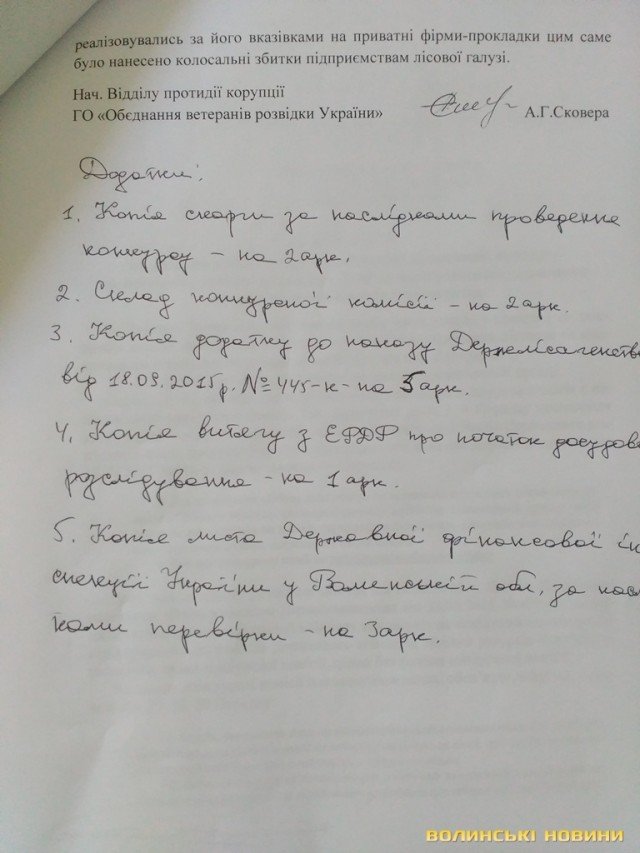 реалізовувались за його вказівками на приватні фірми-прокладки цим саме
було нанесено колосальні збитки підприємствам лісової галузі.
Нач. Відділу протидії корупції
ГО «Обєднання ветеранів розвідки України» А.Г.Сковера
Додатки:
1. Копія скарги за наслідками проведення
конкурсу – на 2 арк.
2. Склад конкурсної комісії – на 2 арк.
3. Копія додатку до наказу Держлісагенства
від 18.09.2015р. № 445-к – на 5 арк.
4. Копія витягу з ЕРДР про початок досудово
розслідування – на 1 арк.
5. Копія листа Державної фінансової ін
спекції України у Волинській обл. за насл
ками перевірки – на 3 арк.
ВОЛИНСЬКІ НОВИНИ